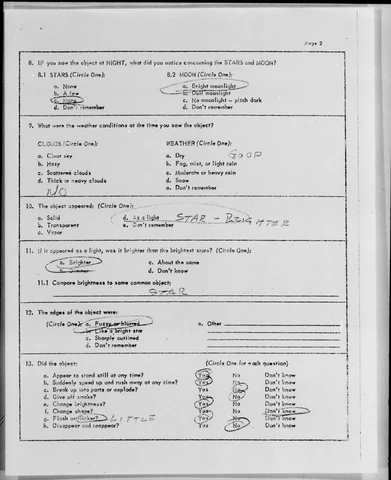 Page 2
8. If you saw the object at NIGHT, what did you notice concerning the STARS and MOON?
8.1 STARS (Circle One): 8.2 MOON (Circle One):
a. None a. Bright moonlight
b. A few b. Dull moonlight
c. Many c. No moonlight — pitch dark
d. Don't remember d. Don't remember
9. What were the weather conditions at the time you saw the object?
CLOUDS (Circle One): WEATHER (Circle One):
a. Clear sky a. Dry GOOD
b. Hazy b. Fog, mist, or light rain
c. Scattered clouds c. Moderate or heavy rain
d. Thick or heavy clouds d. Snow
NO e. Don't remember
10. The object appeared: (Circle One):
a. Solid d. As a light STAR - BRIGHTER
b. Transparent e. Don't remember
c. Vapor
11. If it appeared as a light, was it brighter than the brightest stars? (Circle One):
a. Brighter c. About the same
b. Dimmer d. Don't know
11.1 Compare brightness to some common object:
STAR
12. The edges of the object were:
(Circle One): a. Fuzzy or blurred e. Other
b. Like a bright star
c. Sharply outlined
d. Don't remember
13. Did the object: (Circle One for each question)
a. Appear to stand still at any time? Yes No Don't know
b. Suddenly speed up and rush away at any time? Yes No Don't know
c. Break up into parts or explode? Yes No Don't know
d. Give off smoke? Yes No Don't know
e. Change brightness? Yes No Don't know
f. Change shape? Yes No Don't know
g. Flash or flicker? LITTLE Yes No Don't know
h. Disappear and reappear? Yes No Don't know